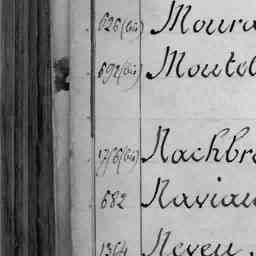 626 (bis) Moura
692 (bis) Moutel
(bis) Nachbr
682 Naviau
1364 Neveu